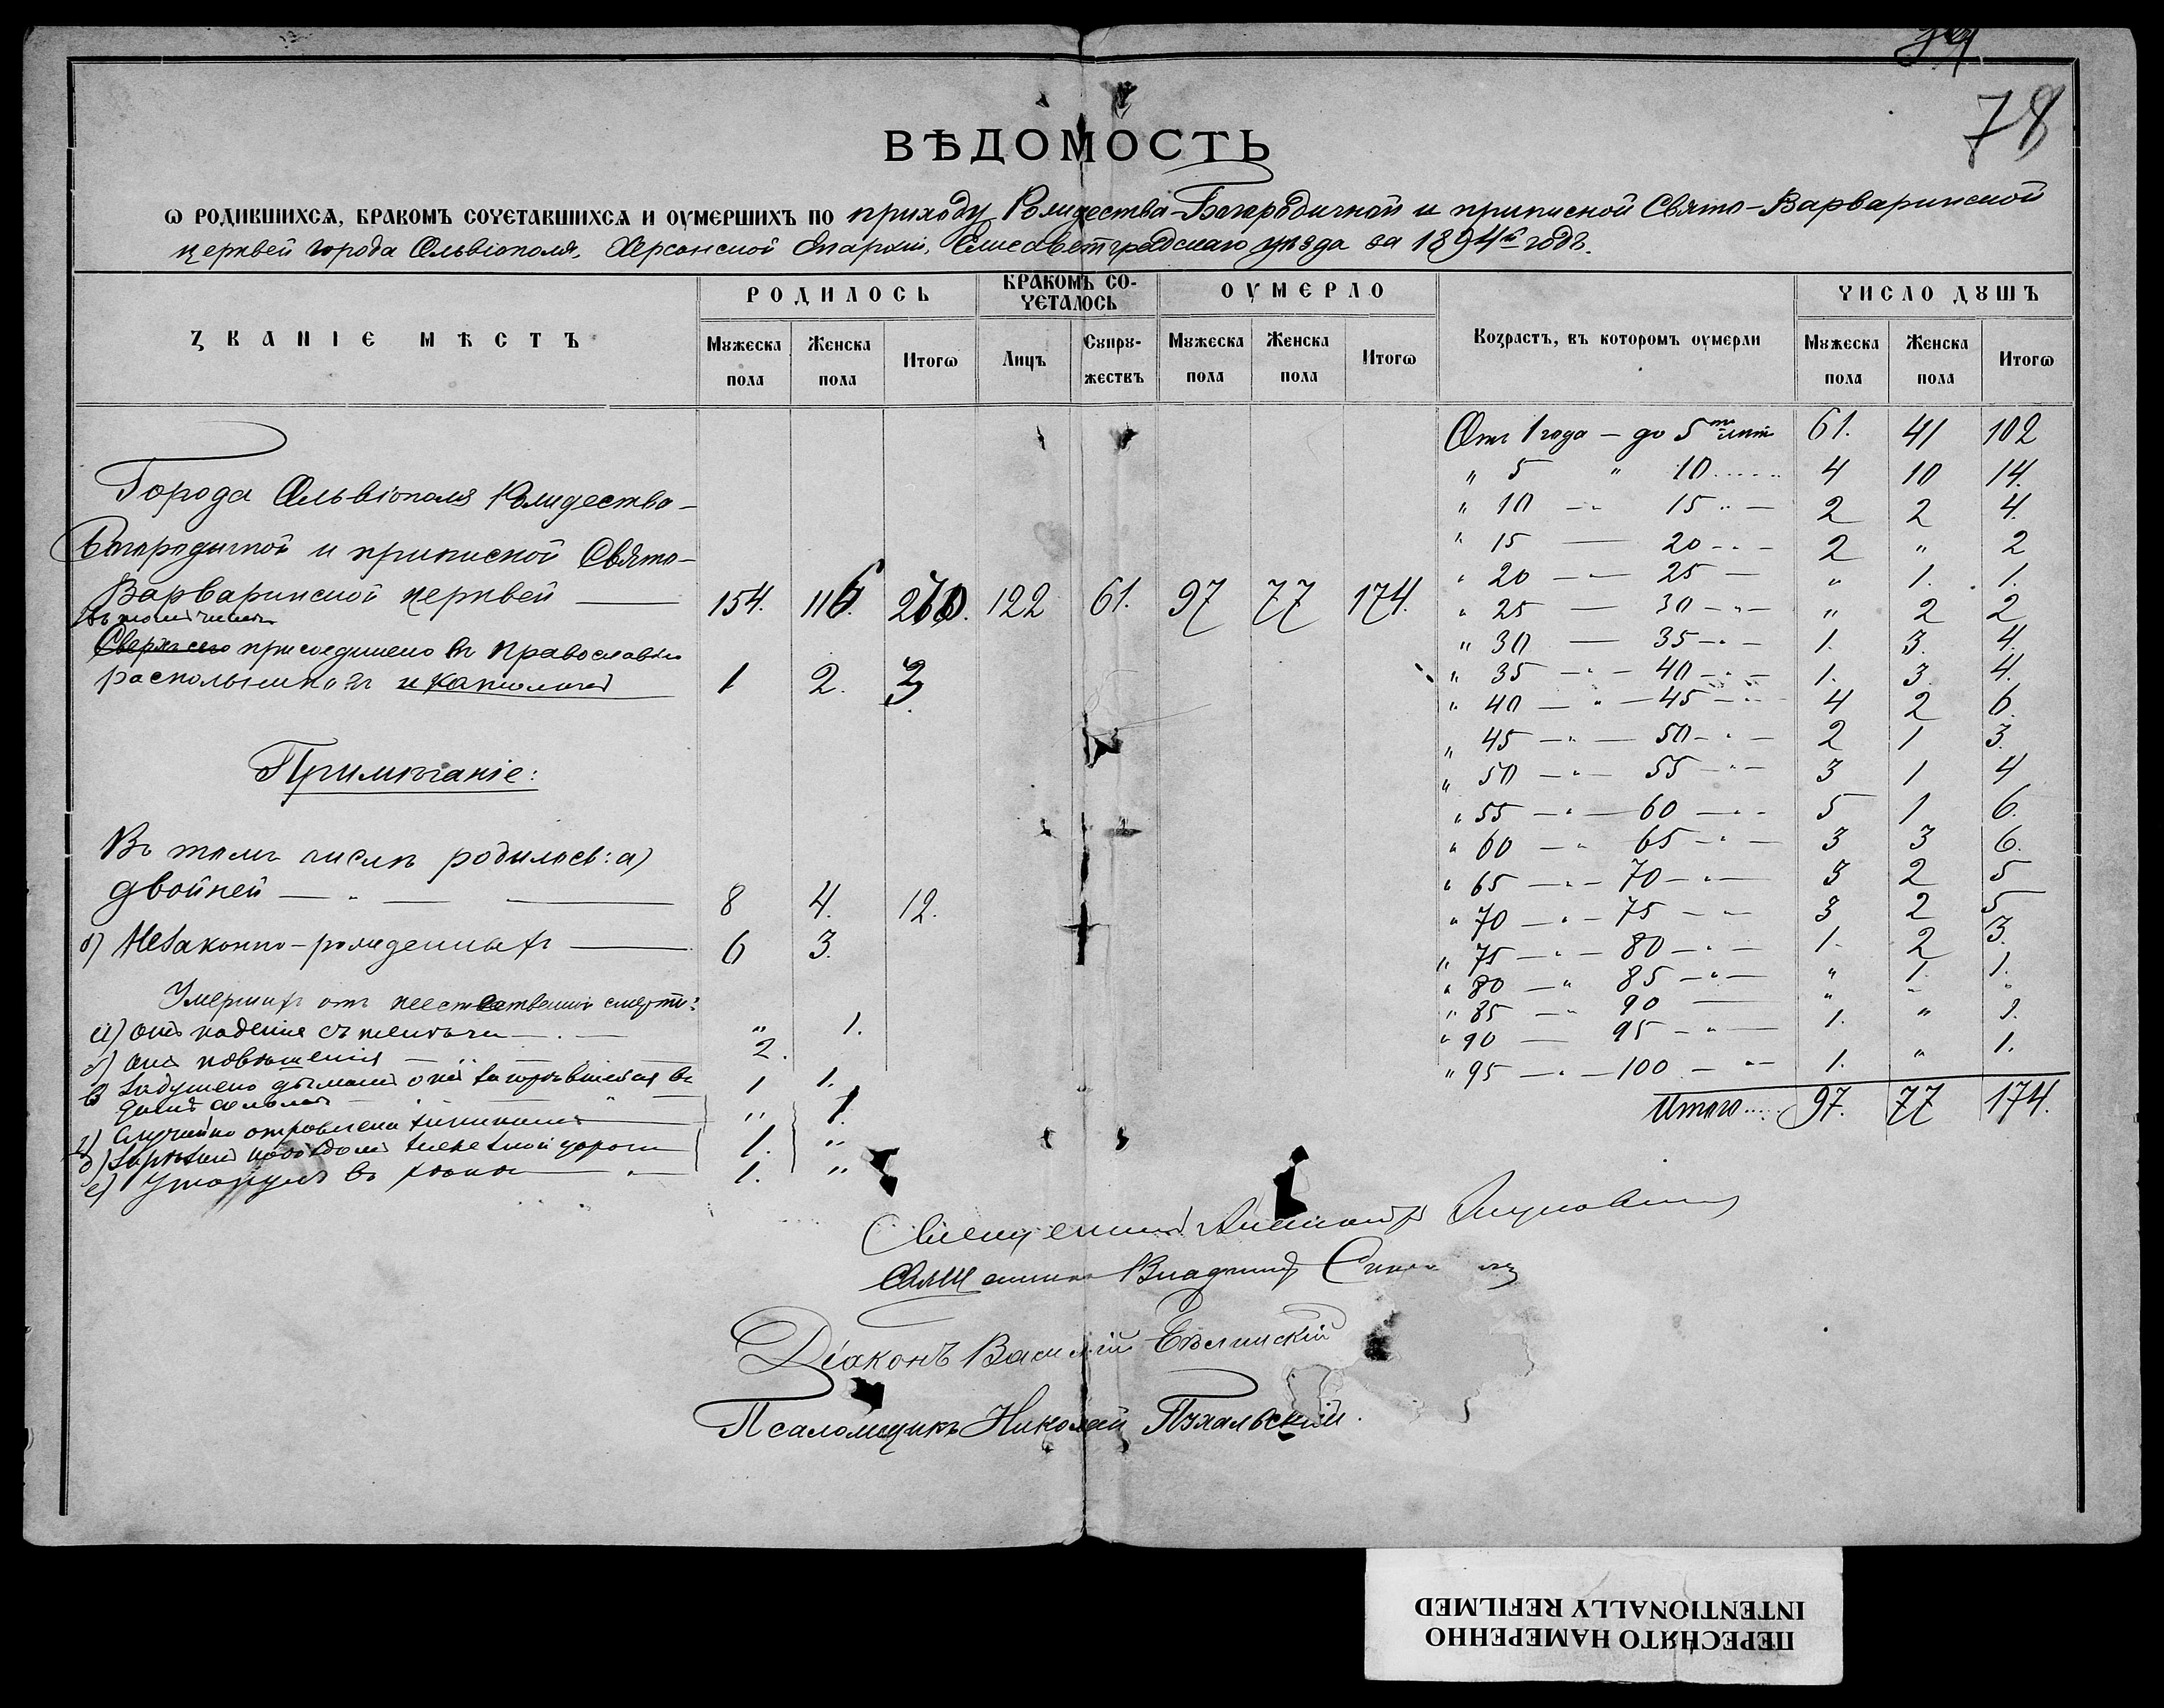 78
ВѢДОМОСТЬ
Ѡ РОДИВШИХСѦ, БРАКОМЪ СОЧЕТАВШИХСѦ И ОУМЕРШИХЪ ПО приходу Рождества-Богородичной и приписной Свято-Варваринской
церквей города Ольвіополя, Херсонской Епархіи, Елисаветградскаго уѣзда за 1894й годъ.
ЗВАНІЕ МѢСТЪ
РОДИЛОСЬ
БРАКОМЪ СО-
ЧЕТАЛОСЬ
ОУМЕРЛО
Возрастъ, въ котором оумерли
ЧИСЛО ДꙊШЪ
Мꙋжеска пола
Женска пола
Итогѡ
Лицъ
Сꙋпрꙋ-
жествъ
Мꙋжеска пола
Женска пола
Итогѡ
Мꙋжеска пола
Женска пола
Итогѡ
Города Ольвіополя Рождество-
Богородичной и приписной Свято-
Варваринской церквей 154. 116. 270. 122 61. 97 77 174.
Въ томъ числѣ
Сверхъ сего присоединено къ Православію
раскольниковъ и католиковъ 1 2. 3
Примѣчаніе:
Въ томъ числѣ родилось: а)
двойней 8 4. 12.
б) Незаконно-рожденныхъ 6 3.
Умершихъ отъ неестественной смерти:
а) отъ паденія съ " 1.
б) отъ повѣшенія 2.
в) Задушено дымомъ отъ загорѣвшейся въ 1 1.
домѣ соломы
г) Случайно отравлена " 1.
д) Зарѣзанъ поѣздомъ желѣзной дороги 1. "
е) Утонулъ въ 1. "
Отъ 1 года — до 5ти лѣтъ 61. 41 102
" 5 " 10 4 10 14.
" 10 — 15 2 2 4.
" 15 — 20 2 " 2
" 20 — 25 " 1. 1.
" 25 — 30 " 2 2
" 30 — 35 1. 3. 4.
" 35 — 40 1. 3. 4.
" 40 — 45 4 2 6.
" 45 — 50 2 1 3.
" 50 — 55 3 1 4
" 55 — 60 5 1 6.
" 60 — 65 3 3 6.
" 65 — 70 3 2 5
" 70 — 75 3 2 5
" 75 — 80 1. 2 3.
" 80 — 85 " 1. 1.
" 85 — 90 " " "
" 90 — 95 1. " 1.
" 95 — 100 1. " 1.
Итого 97. 77 174.
Священникъ Александръ
Священникъ Владиміръ
Діаконъ Василій
Псаломщикъ Николай
ПЕРЕСНЯТО НАМЕРЕННО
INTENTIONALLY REFILMED